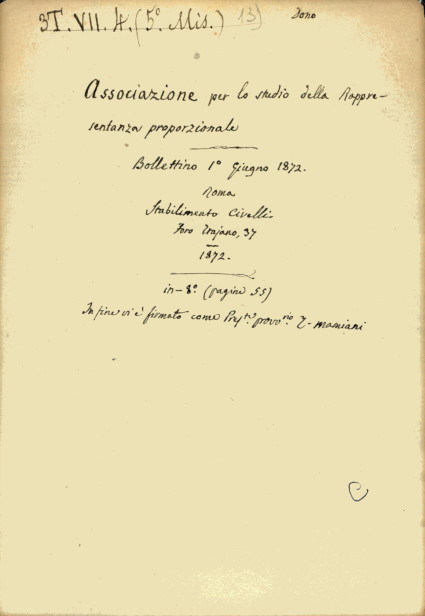 3T. VII. 4. (5º Mis.) 13) Dono
Associazione per lo studio della Rappre-
sentanza proporzionale
Bollettino 1º Giugno 1872.
Roma
Stabilimento Civelli
Foro Trajano, 37
1872.
in-8º (pagine 55)
In fine vi è firmato come Pres.te provv.rio T. Mamiani
C